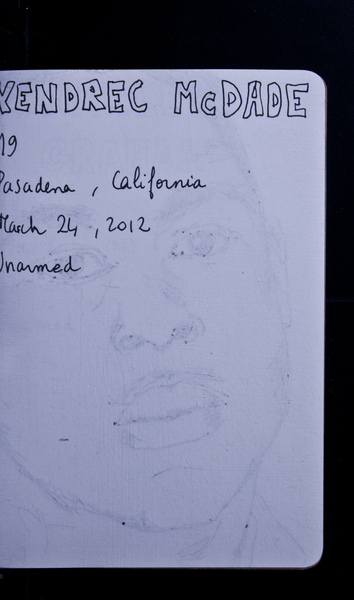 KENDREC McDADE
19
Pasadena, California
March 24, 2012
Unarmed